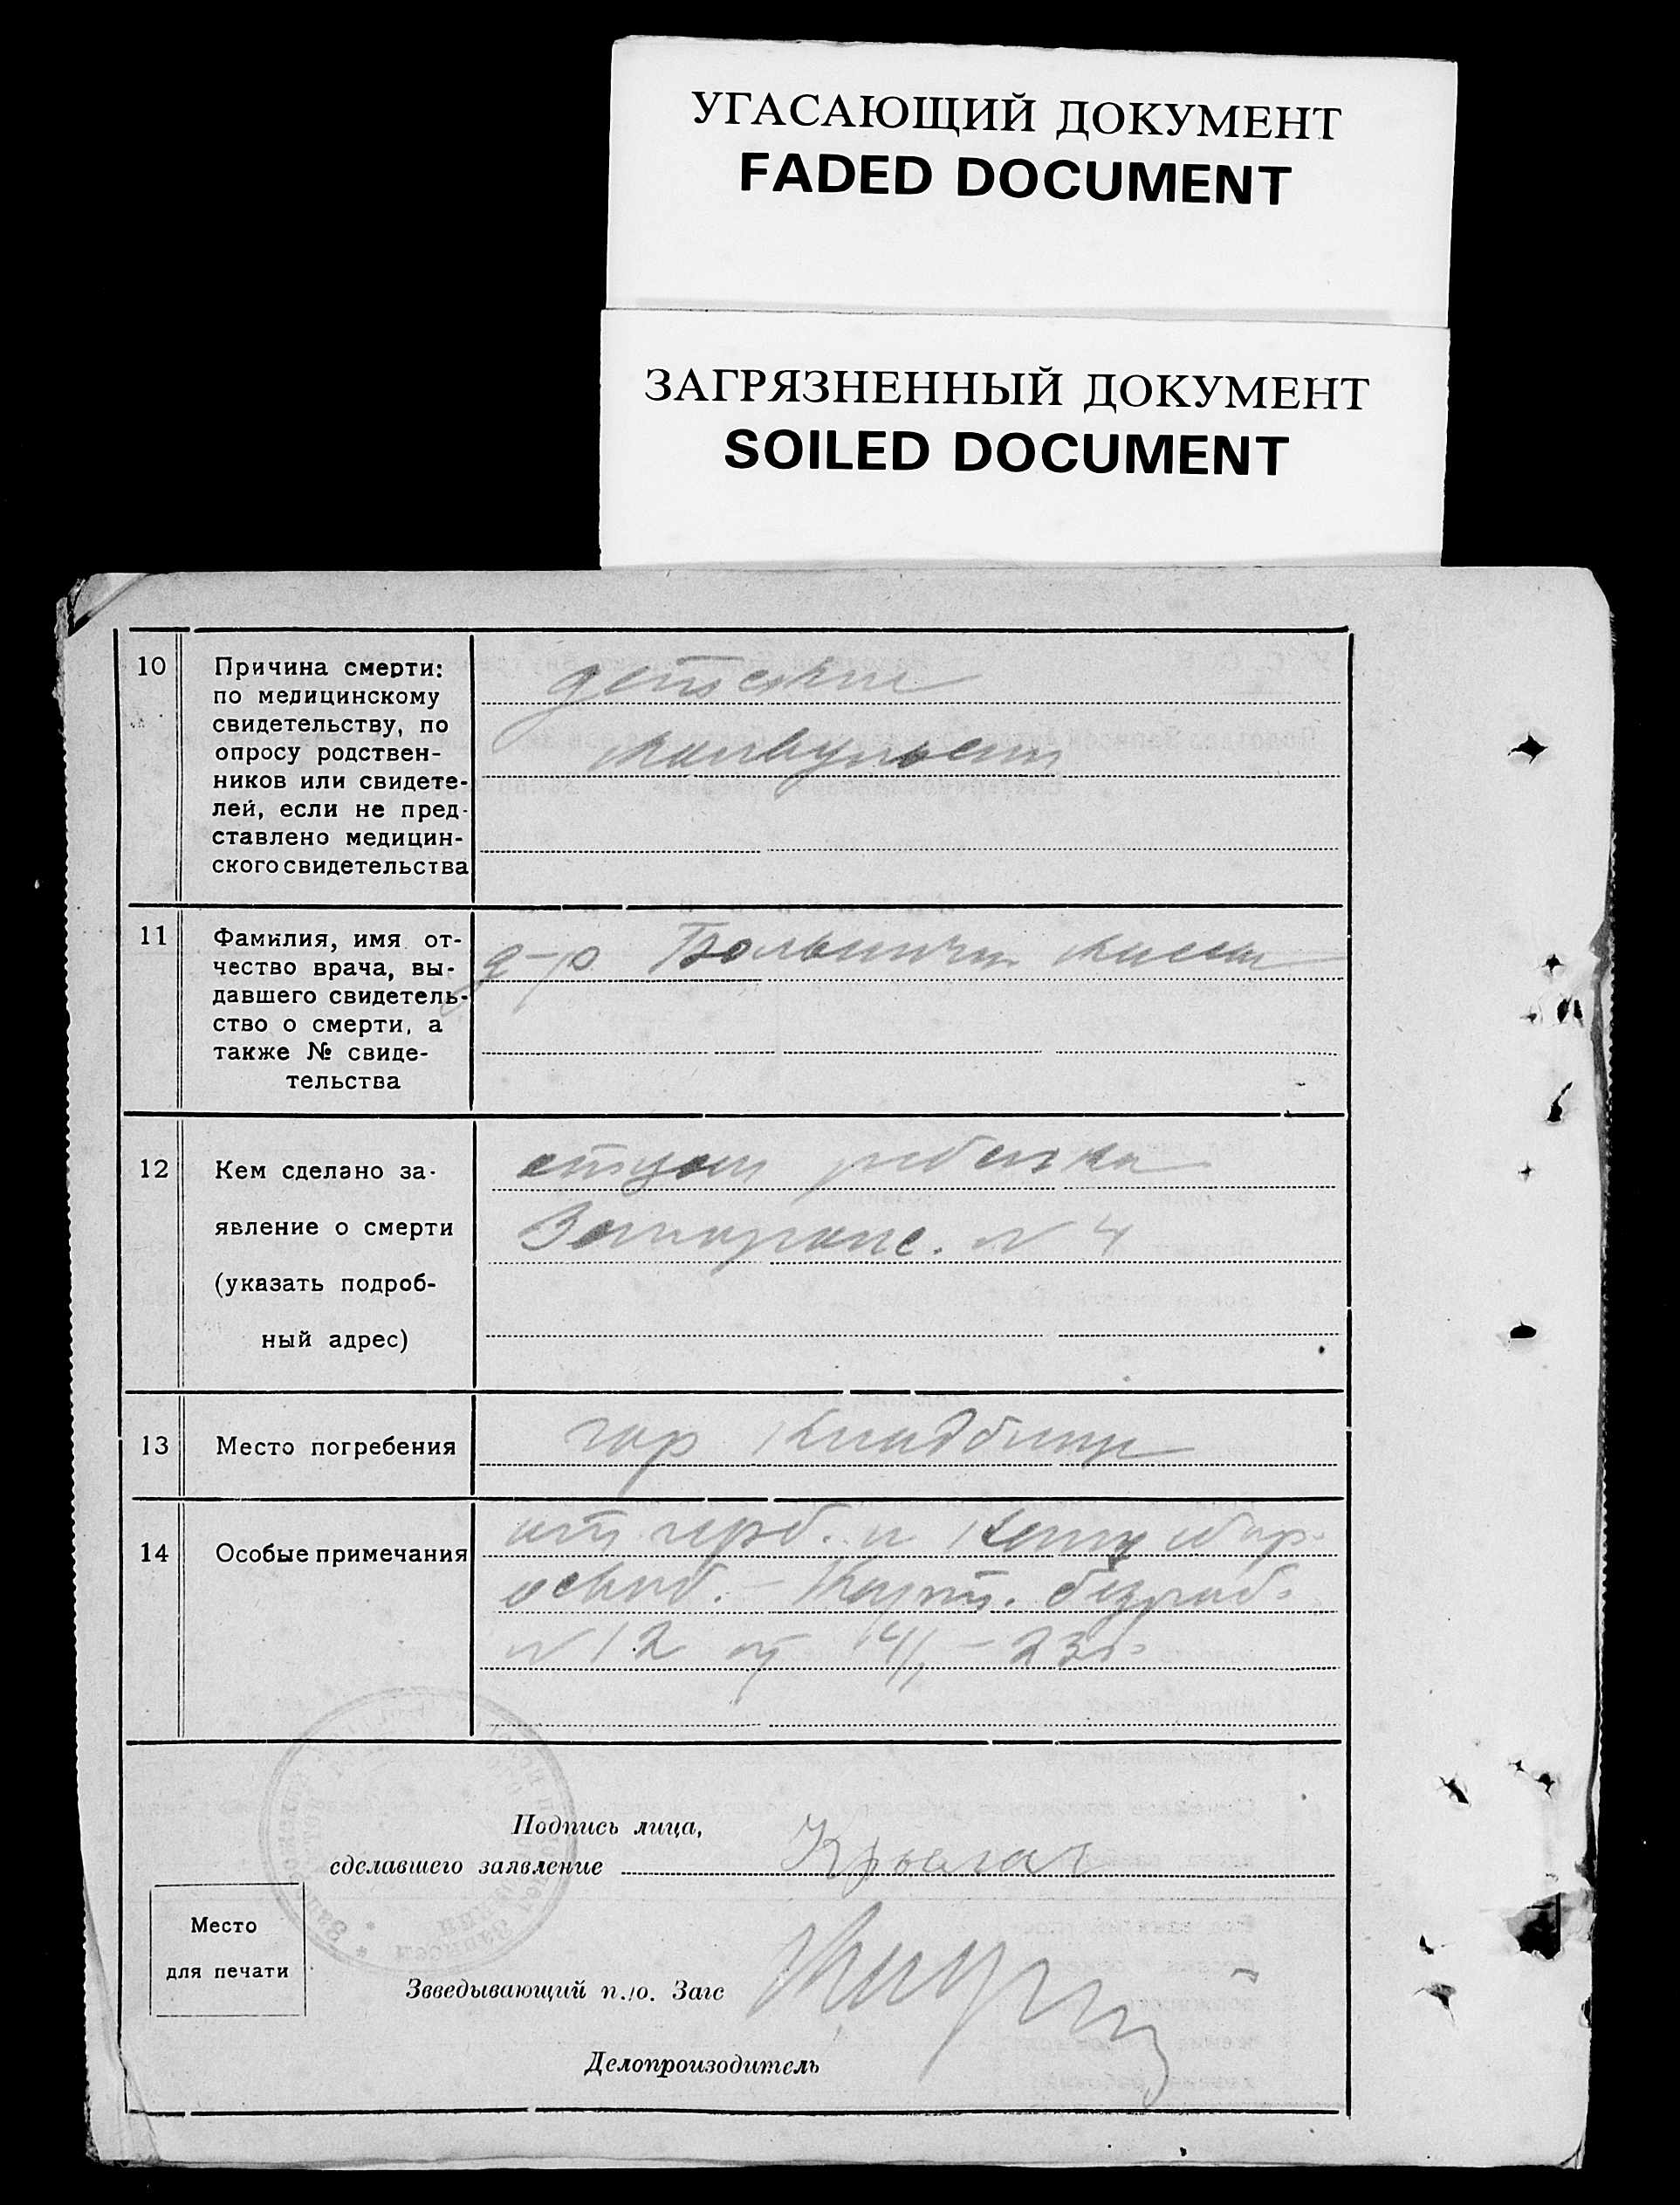 УГАСАЮЩИЙ ДОКУМЕНТ
FADED DOCUMENT
ЗАГРЯЗНЕННЫЙ ДОКУМЕНТ
SOILED DOCUMENT
10
Причина смерти:
по медицинскому
свидетельству, по
опросу родствен-
ников или свидете-
лей, если не пред-
ставлено медицин-
ского свидетельства
детские
конвульсии
11
Фамилия, имя от-
чество врача, вы-
давшего свидетель-
ство о смерти, а
также № свиде-
тельства
д-р Больничн кассы
12
Кем сделано за-
явление о смерти
(указать подроб-
ный адрес)
отцом ребенка
N 4
13
Место погребения
гор Кладбище
14
Особые примечания
от герб. и
освоб. - безраб.
N 12 от - 23г.
Подпись лица,
сделавшего заявление
Место
для печати
Звведывающий п./о. Загс
Делопроизодитель